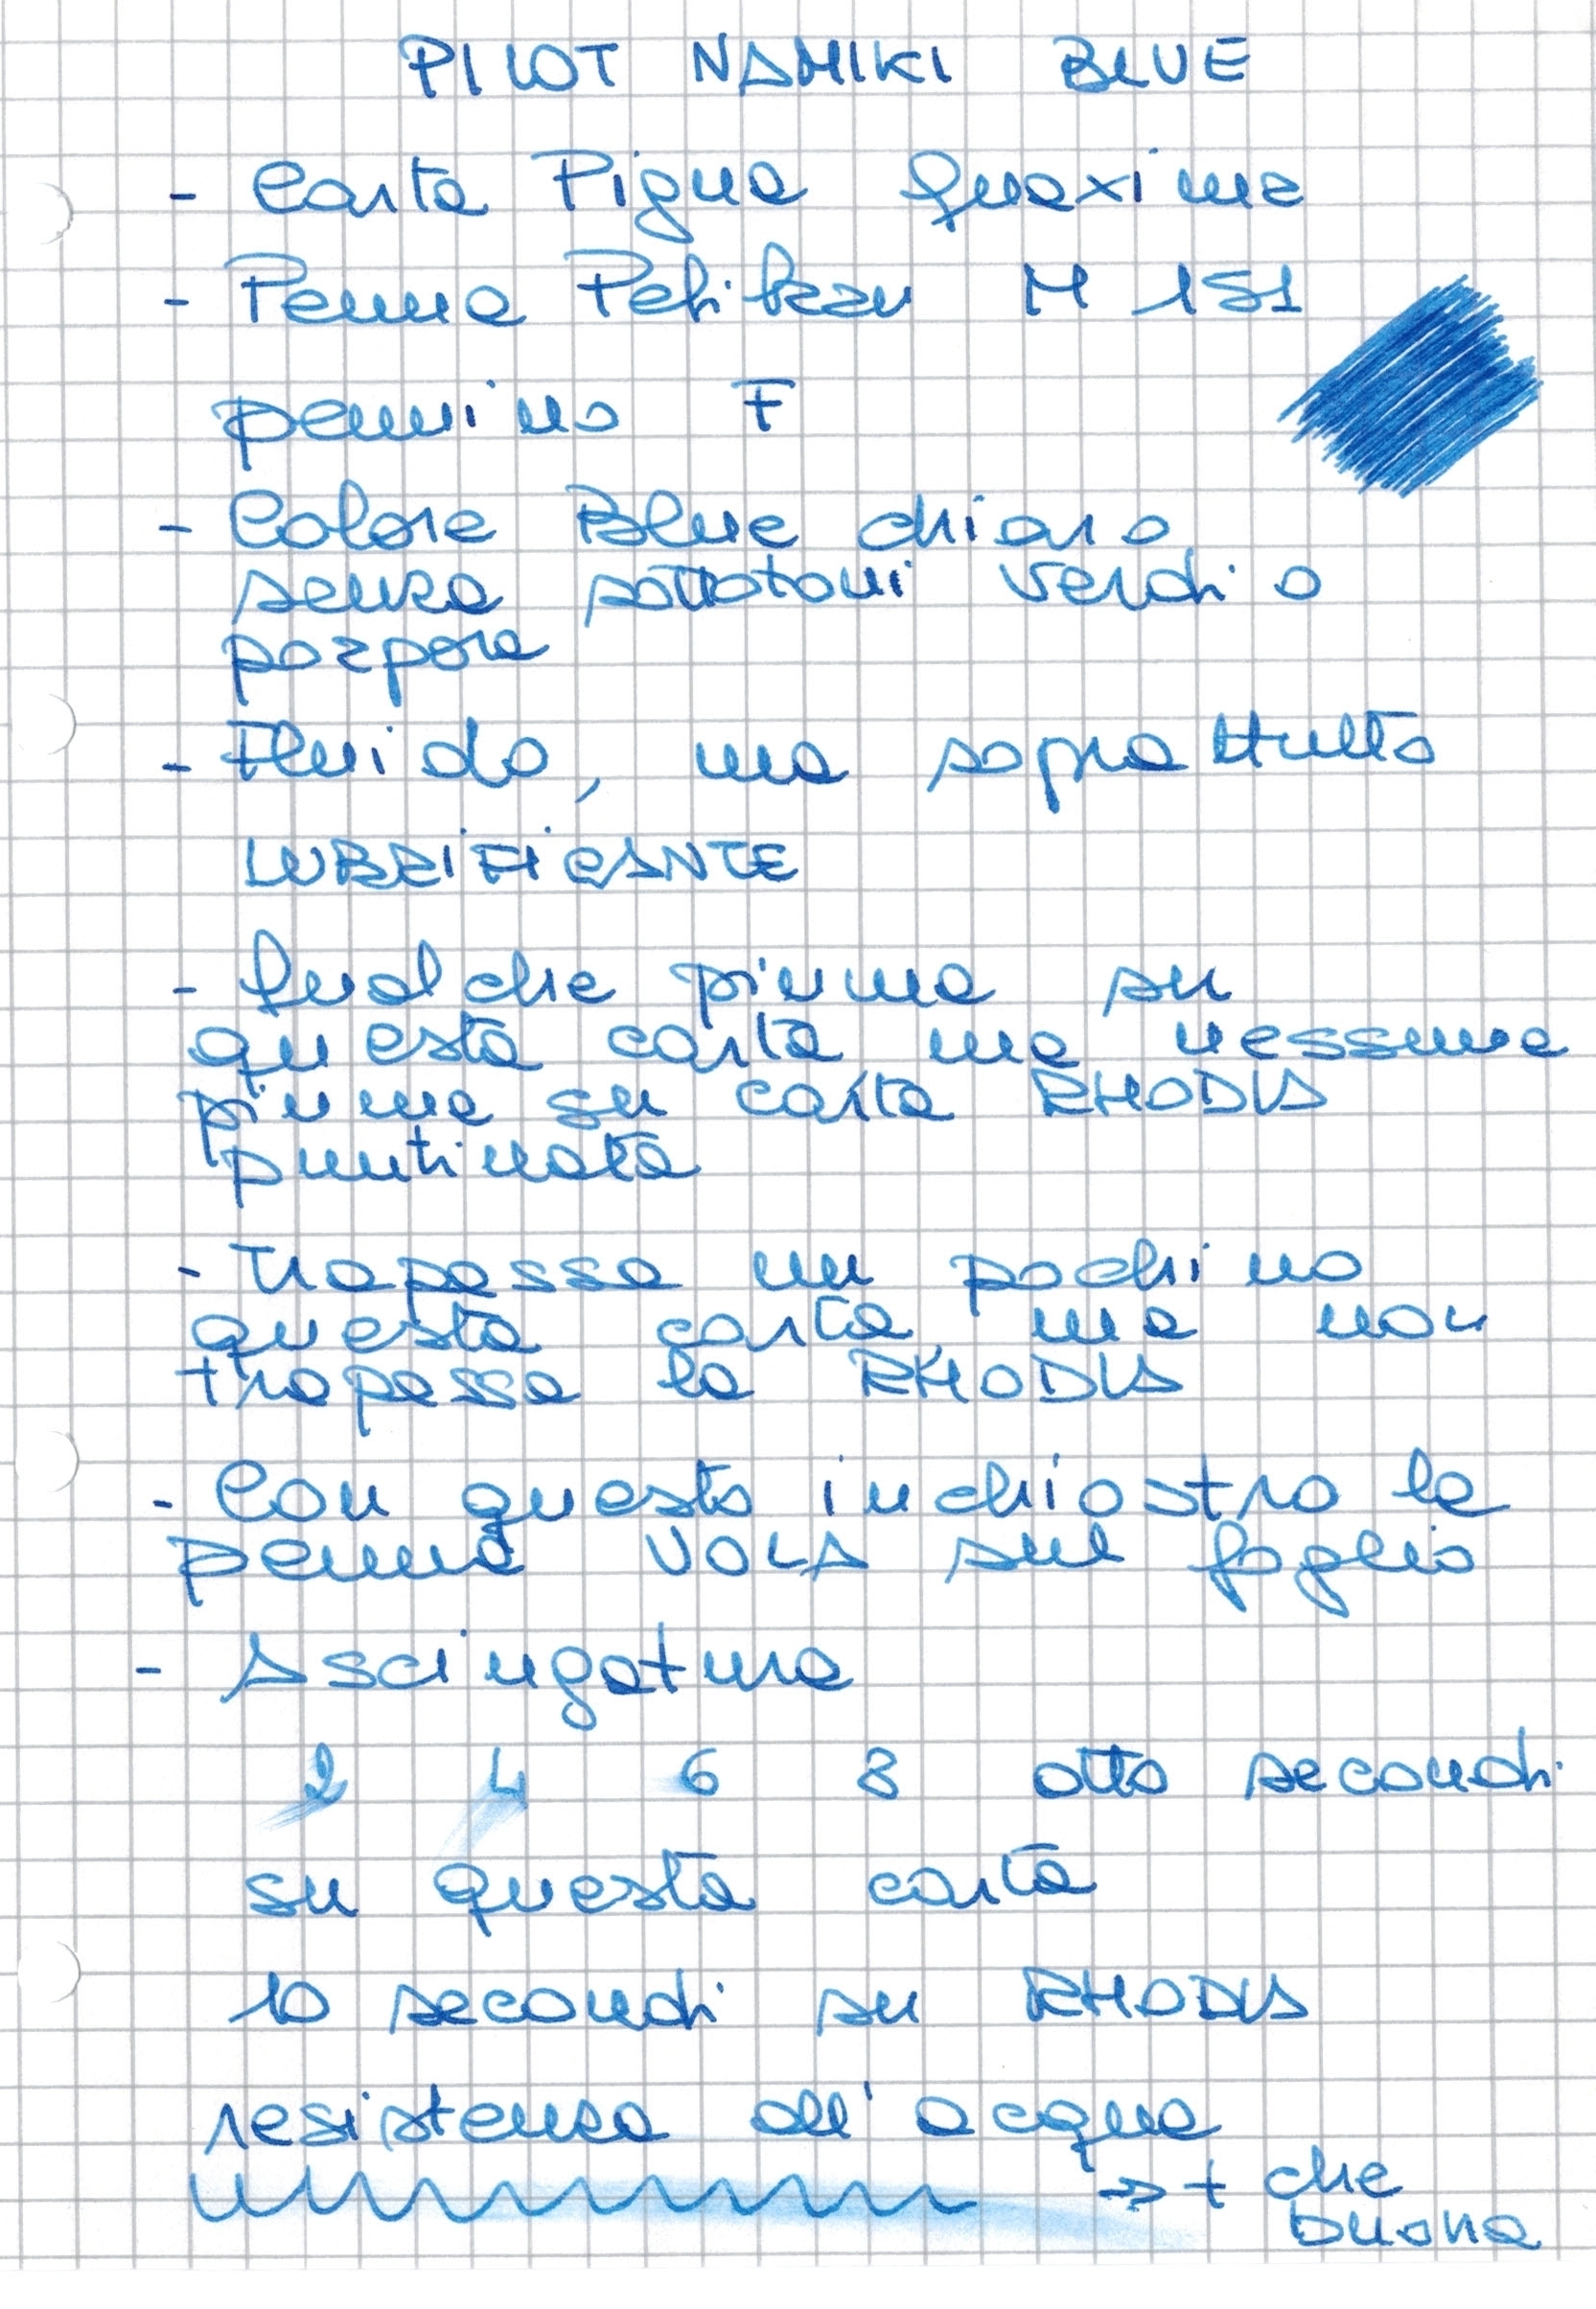 PILOT NAMIKI BLUE
- Carta Pigna Quaxima
- Penna Pelikan M 151
pennino F
- Colore Blue chiaro
senza sottotoni verdi o
porpora
- Fluido, ma soprattutto
LUBRIFICANTE
- Qualche piuma su
questa carta ma nessuna
piuma su carta RHODIA
puntinata
- Trapassa un pochino
questa carta ma non
trapassa la RHODIA
- Con questo inchiostro la
penna VOLA sul foglio
- Asciugatura
2 4 6 8 otto secondi
su questa carta
10 secondi su RHODIA
resistenza all'acqua
→ + che
buona